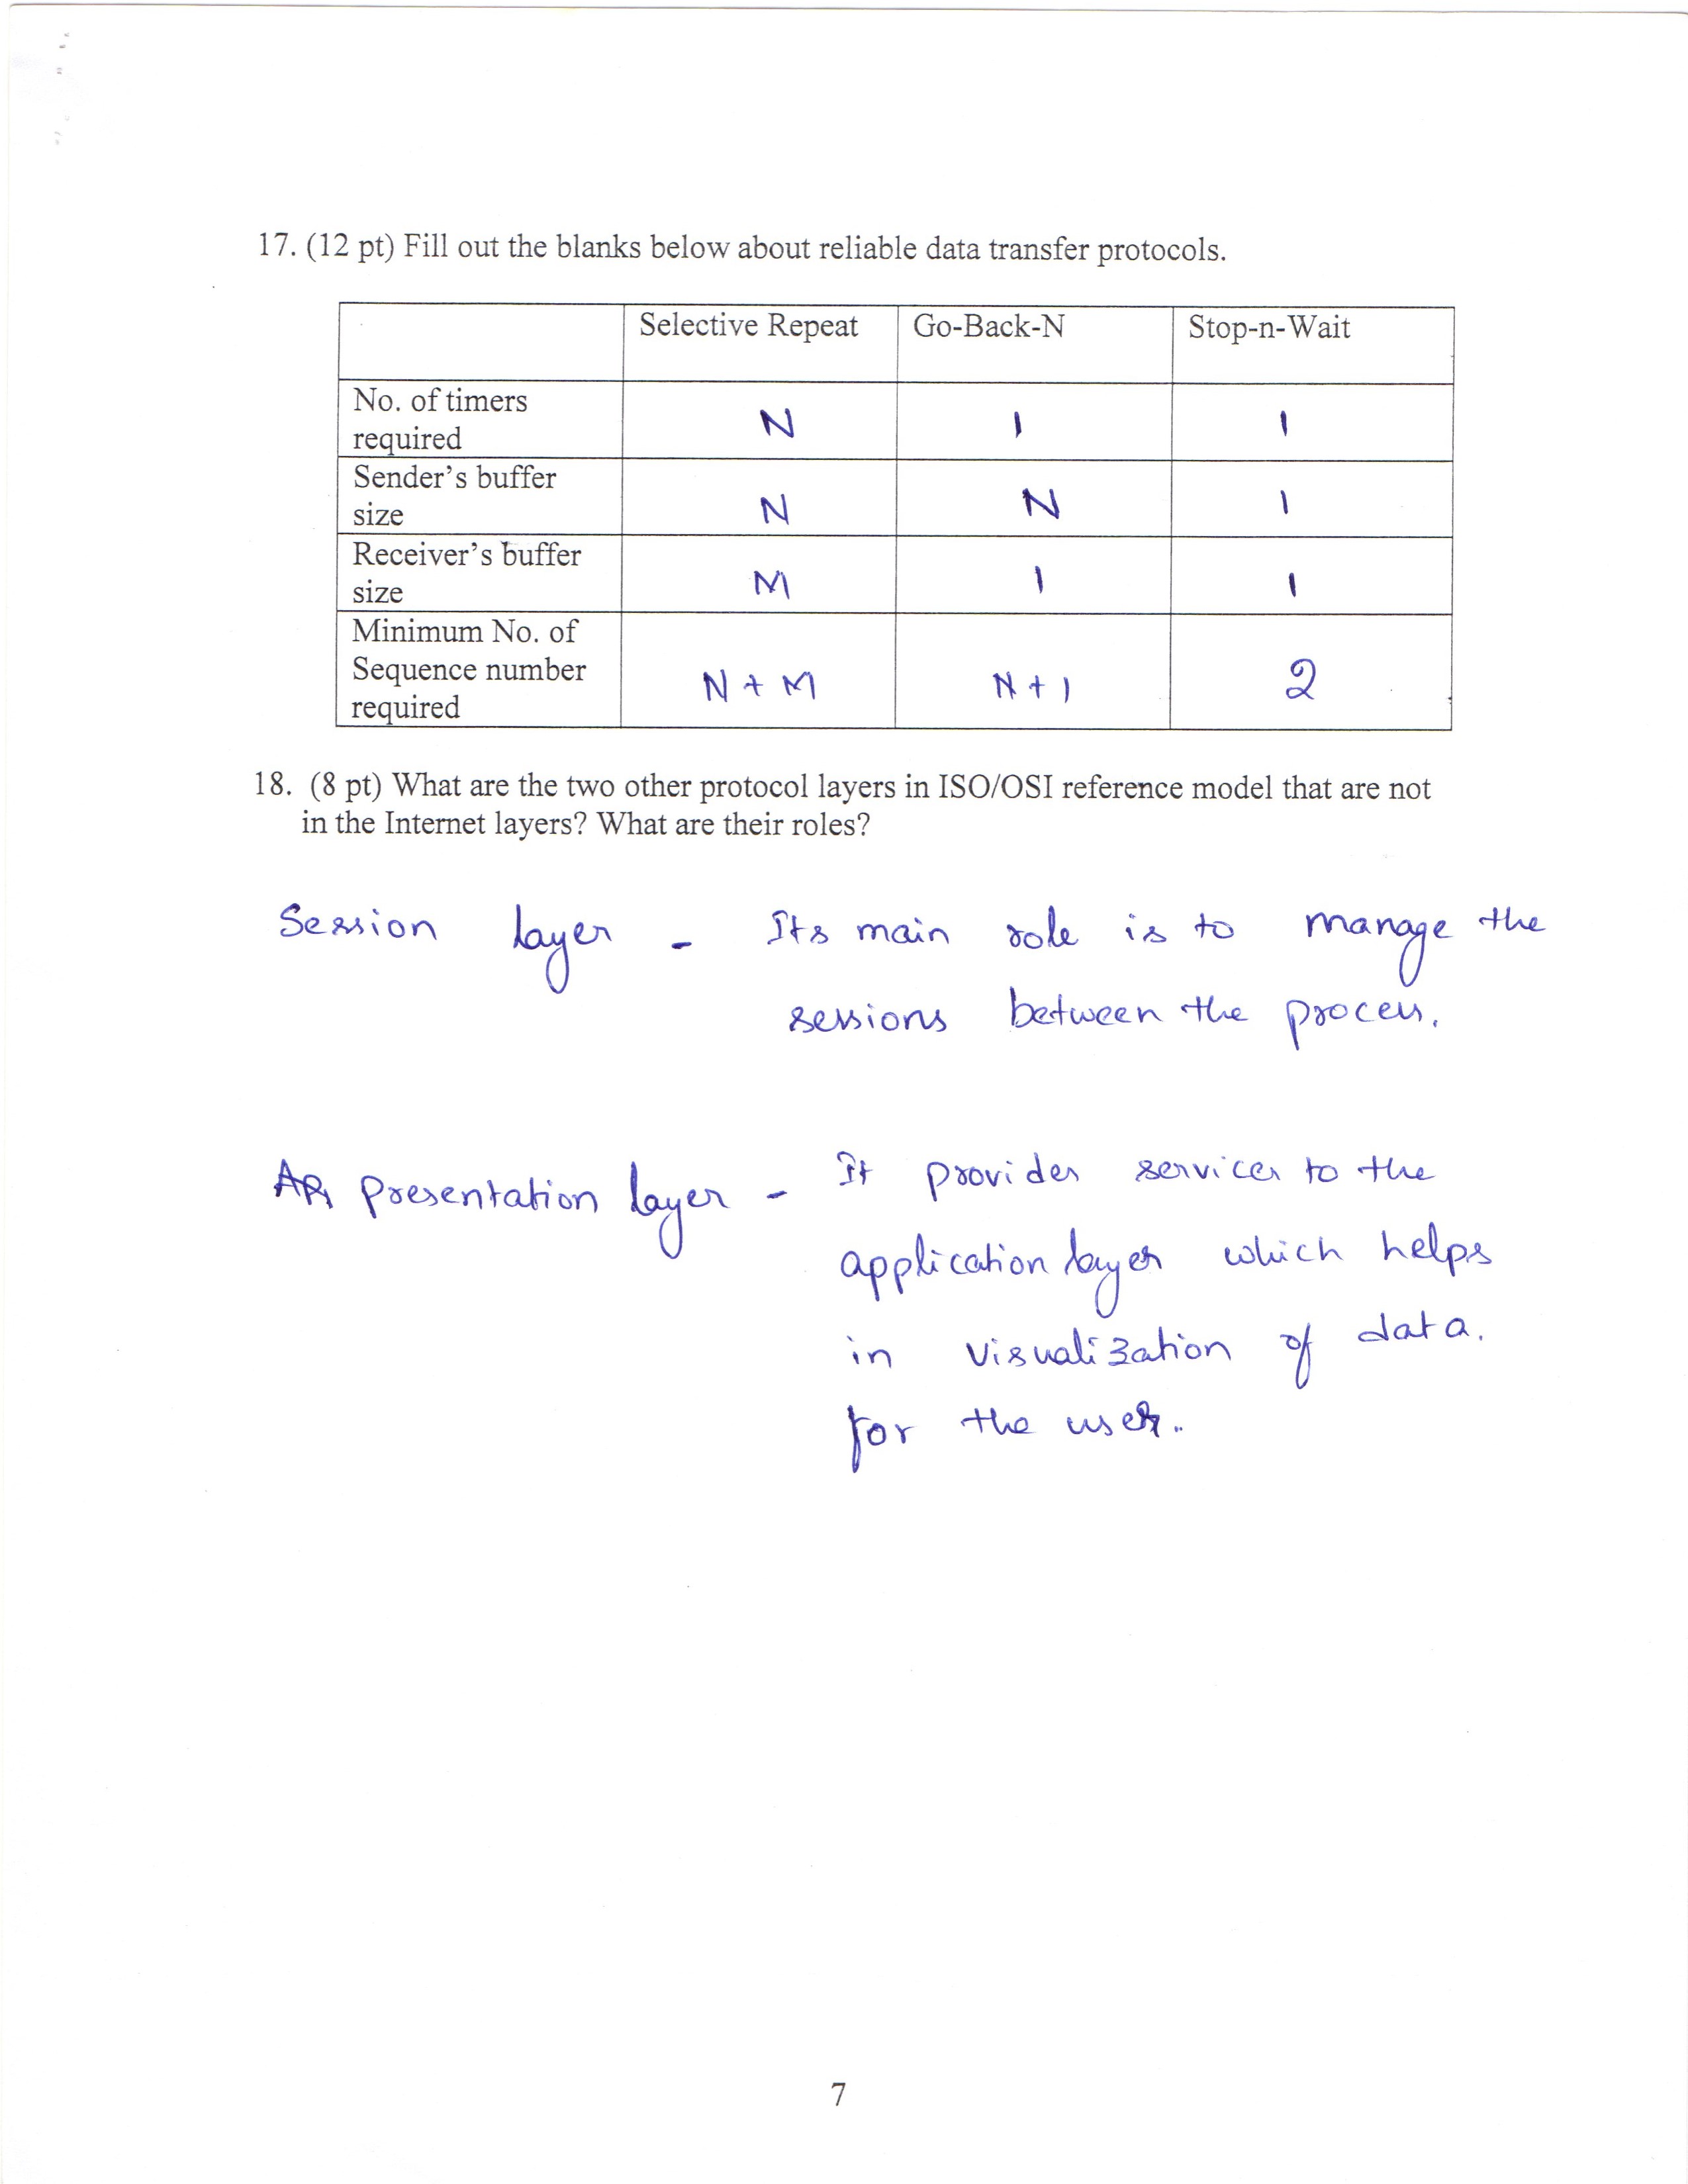 17. (12 pt) Fill out the blanks below about reliable data transfer protocols.
Selective Repeat Go-Back-N Stop-n-Wait
No. of timers
required N 1 1
Sender's buffer
size N N 1
Receiver's buffer
size M 1 1
Minimum No. of
Sequence number
required N + M N + 1 2
18. (8 pt) What are the two other protocol layers in ISO/OSI reference model that are not
in the Internet layers? What are their roles?
Session layer - Its main role is to manage the
sessions between the process.
Presentation layer - It provides services to the
application layer which helps
in visualization of data.
for the user.
7